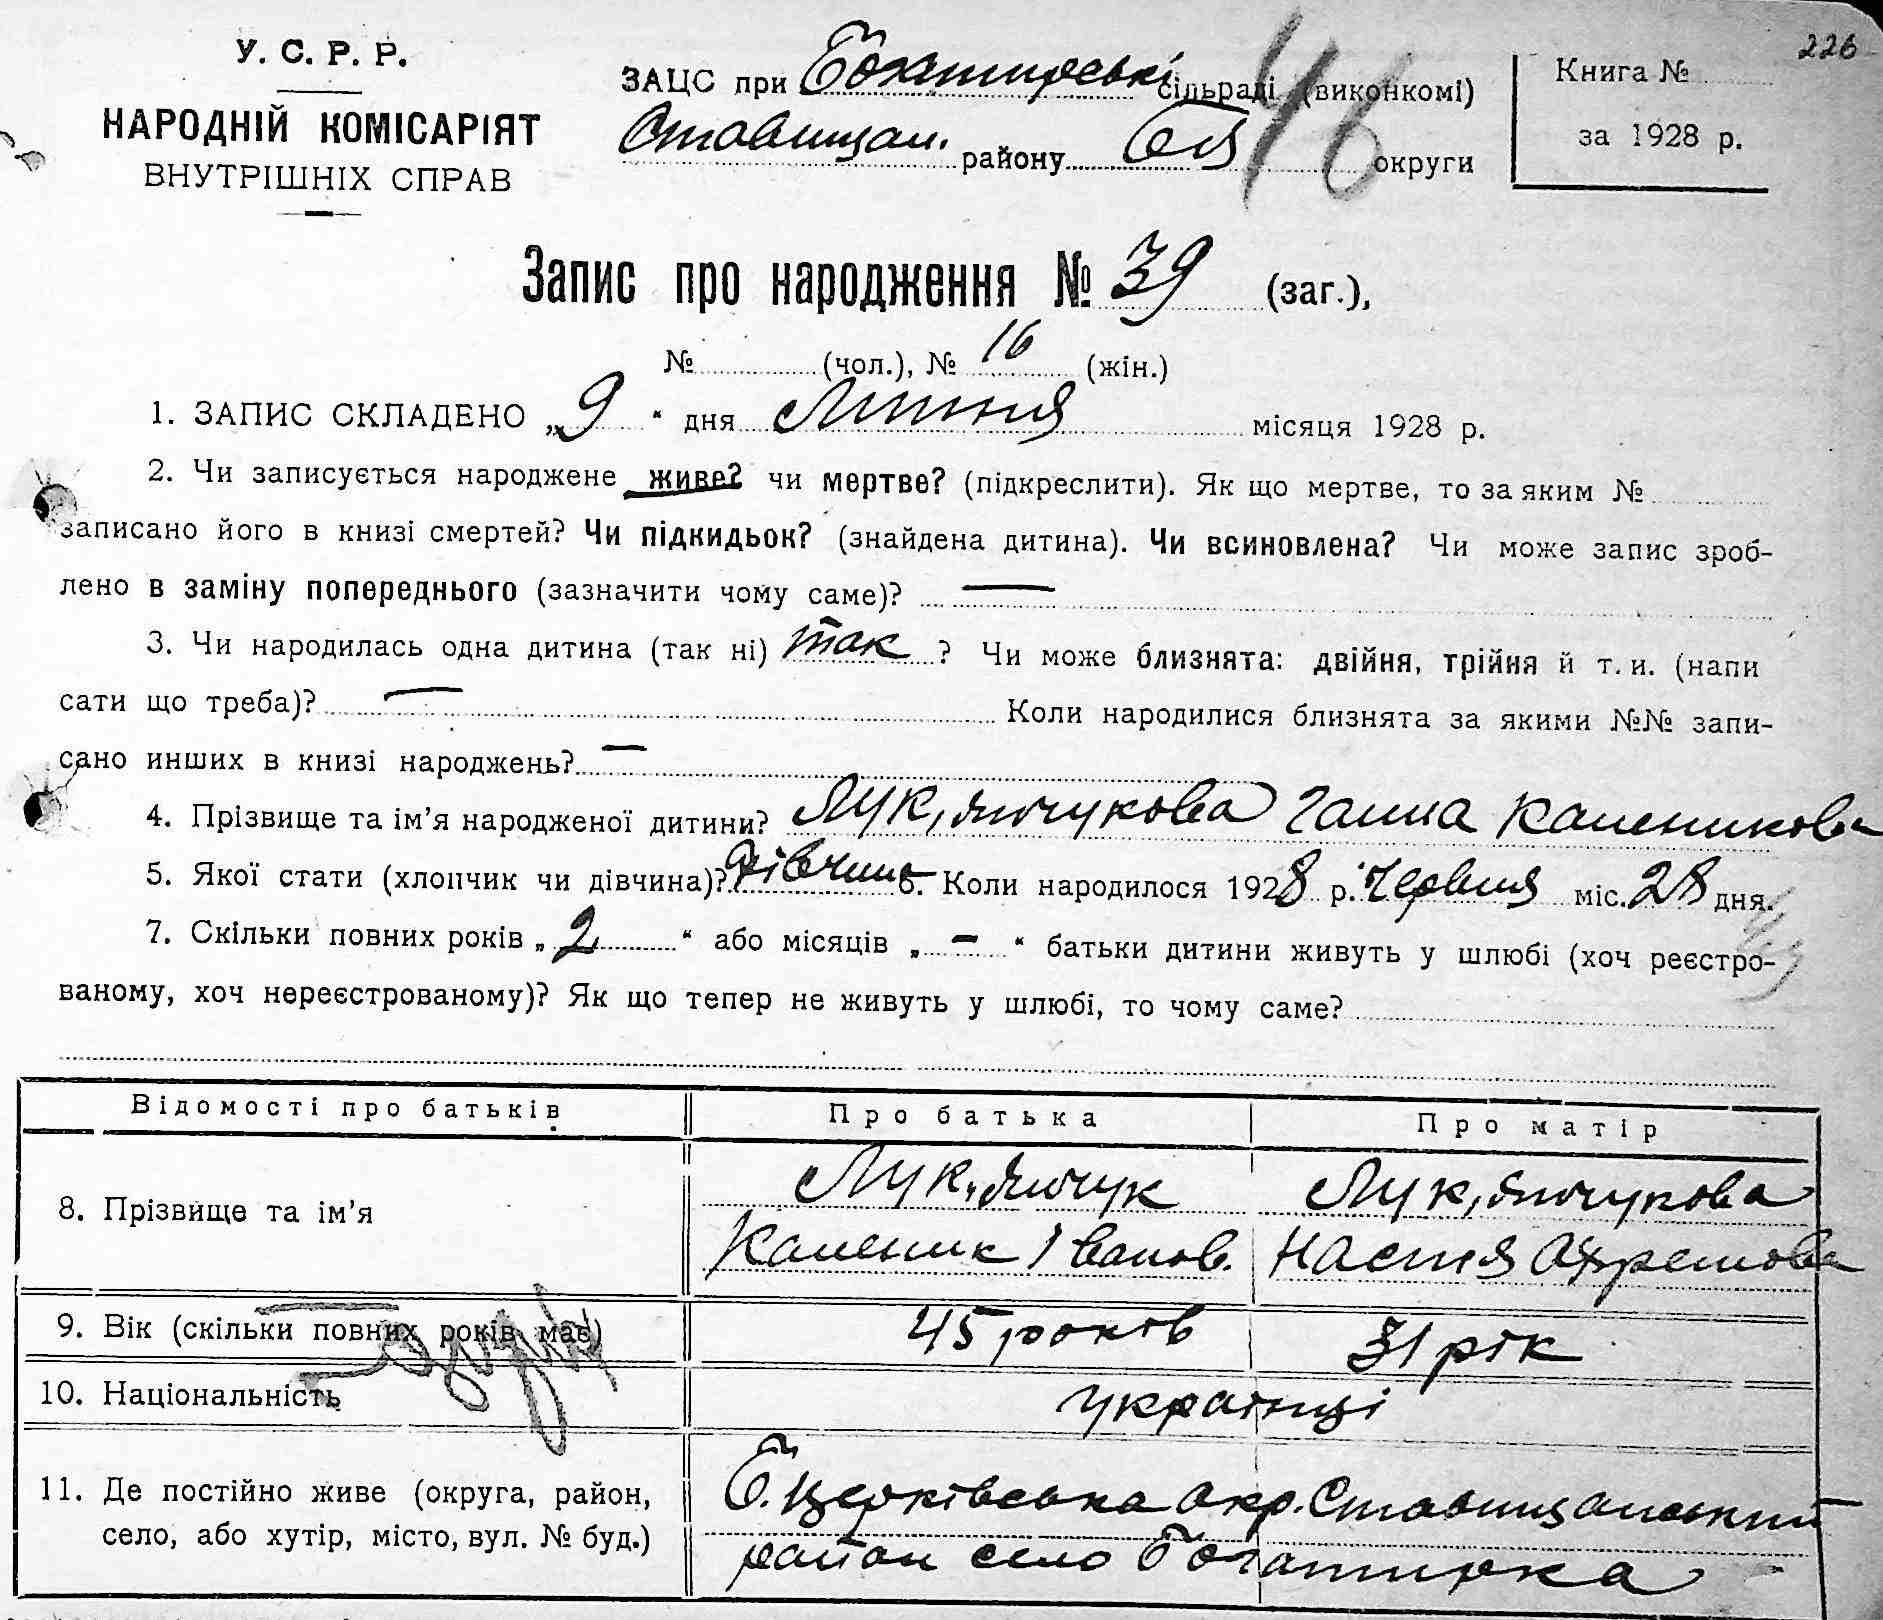 226
У. С. Р. Р.
НАРОДНІЙ КОМІСАРІЯТ
ВНУТРІШНІХ СПРАВ
ЗАЦС при Богатирські сільраді (виконкомі)
Ставищан. району БЦ округи
46
Книга №
за 1928 р.
Запис про народження № 39 (заг.),
№ (чол.), № 16 (жін.)
1. ЗАПИС СКЛАДЕНО „9“ дня Липня місяця 1928 р.
2. Чи записується народжене живе? чи мертве? (підкреслити). Як що мертве, то за яким №
записано його в книзі смертей? Чи підкидьок? (знайдена дитина). Чи всиновлена? Чи може запис зроб-
лено в заміну попереднього (зазначити чому саме)? —
3. Чи народилась одна дитина (так ні) так ? Чи може близнята: двійня, трійня й т. и. (напи
сати що треба)? — Коли народилися близнята за якими №№ запи-
сано инших в книзі народжень? —
4. Прізвище та ім’я народженої дитини? Лук,янчукова Ганна Калениковa
5. Якої стати (хлопчик чи дівчина)? Дівчина 6. Коли народилося 1928 р. Червня міс. 28 дня.
7. Скільки повних років „2“ або місяців „–“ батьки дитини живуть у шлюбі (хоч реєстро-
ваному, хоч нереєстрованому)? Як що тепер не живуть у шлюбі, то чому саме?
Відомості про батьків Про батька Про матір
8. Прізвище та ім’я Лук,янчук Лук,янчукова
Каленик Іванов. Настя Охремова
9. Вік (скільки повних років має) 45 років 31 рік
10. Національність українці
11. Де постійно живе (округа, район, Б. Церківська окр. Ставищанський
село, або хутір, місто, вул. № буд.) район село Богатирка